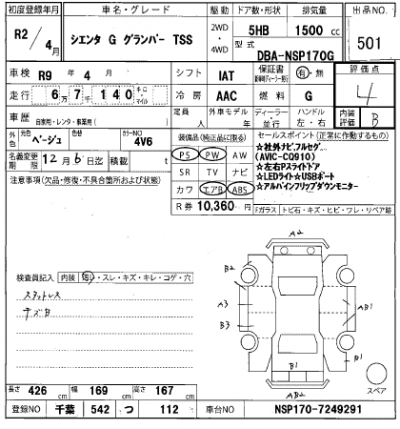 初度登録年月
R2 / 4月
車名・グレード
シエンタ G グランパー TSS
駆動
2WD
4WD
ドア数・形状
5HB
排気量
1500 cc
型式
DBA-NSP170G
出品番号
501
車検 R9 年 4 月
シフト IAT
保証書 有・無
評価点
4
走行 6万7千140 km・マイル
冷房 AAC
燃料 G
車歴 自家用・レンタ・事業用( )
定員 人
外車モデル 年
ディーラー・並行
ハンドル 左・右
内装評価 B
外色 元色 ベージュ
カラーNO 4V6
名義変更期限 12月6日迄
積載 t
装備品(純正品に限る)
PS PW AW
SR TV ナビ
カワ エアB ABS
R券 10,360 円
セールスポイント(正常に動作するもの)
★社外ナビ、フルセグ
(AVIC-CQ910)
★左右Pスライドドア
★LEDライト★USBポート
★アルパインフリップダウンモニター
注意事項(欠品・修復・不具合箇所および状態)
Fガラス トビ石・キズ・ヒビ・ワレ・リペア跡
A2
B2
A3
B3
AB1
B1
B1
AB2
スペア
検査員記入 内装 ・スレ・キズ・キレ・コゲ・穴
スタッドレス
長さ 426 cm
幅 169 cm
高さ 167 cm
登録NO 千葉 542 つ 112
車台NO NSP170-7249291